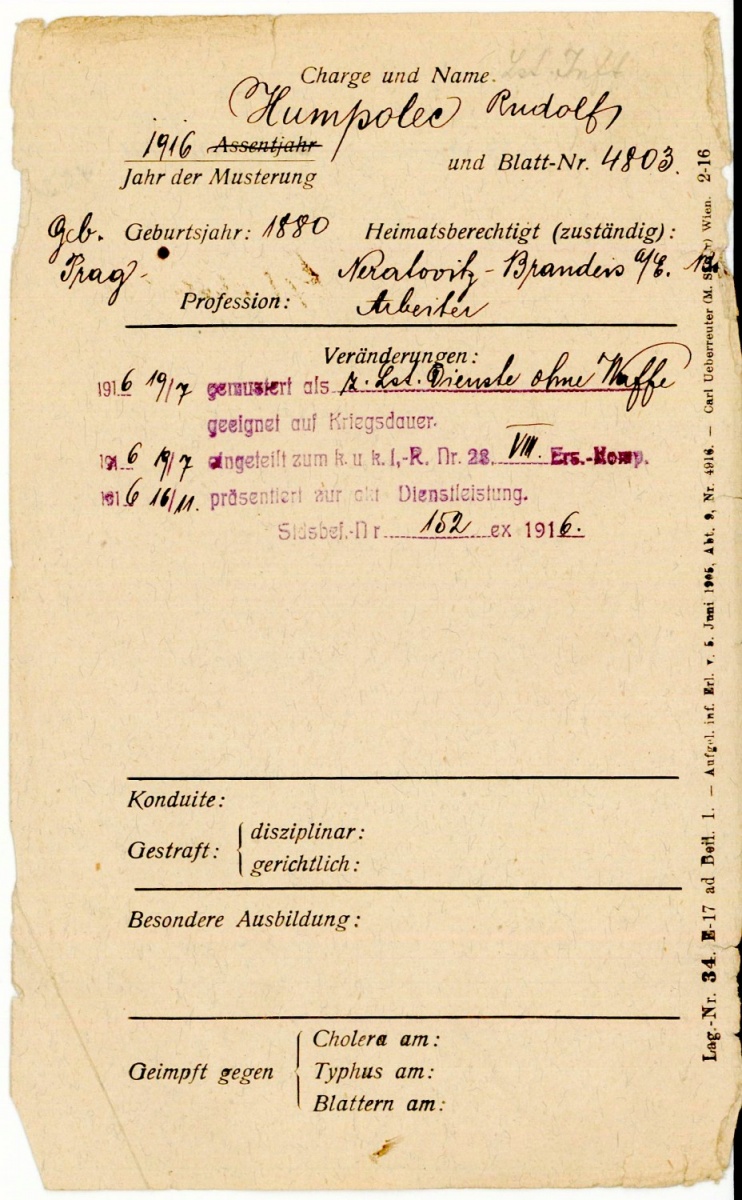 Lst. Inft
Charge und Name.
Humpolec Rudolf
1916 Assentjahr
Jahr der Musterung
und Blatt-Nr. 4803.
Geb. Geburtsjahr: 1880 Heimatsberechtigt (zuständig):
Prag - Neratovitz - Brandeis a/E.
Profession: Arbeiter
Veränderungen:
1916 19/7 gemustert als z. Lst. Dienste ohne Waffe
geeignet auf Kriegsdauer.
1916 19/7 eingeteilt zum k. u k. I.-R. Nr. 28. VIII. Ers.-Komp.
1916 16/11. präsentiert zur akt Dienstleistung.
Stdsbef.-Nr 152 ex 1916.
Konduite:
Gestraft: disziplinar:
gerichtlich:
Besondere Ausbildung:
Geimpft gegen
Cholera am:
Typhus am:
Blattern am:
Lag.-Nr. 34. E-17 ad Beil. 1. — Aufgel. inf. Erl. v. 5. Juni 1905, Abt. 2, Nr. 4916. — Carl Ueberreuter (M. Salzer) Wien. 2-16